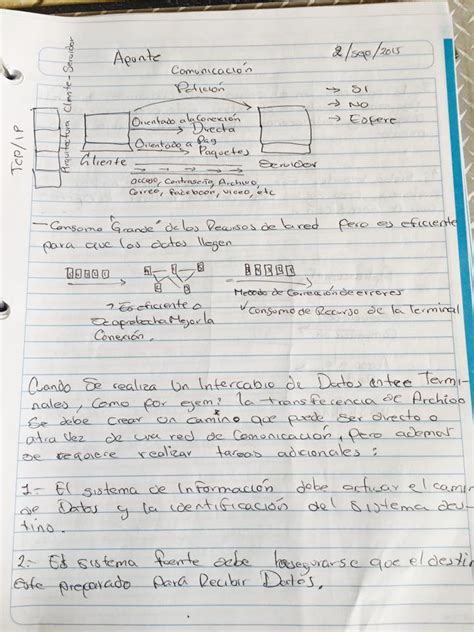 Apunte
2/sep/2015
Comunicación
Petición
TCP/IP
Arquitectura Cliente-Servidor
→ SI
→ NO
→ Espere
Orientado a la Conexión
Directa
Orientado a Paq
Paquetes
Cliente
Servidor
acceso, Contraseña, Archivo
Correo, facebook, video, etc
- Consumo "Grande" de los Recursos de la red pero es eficiente
para que los datos llegen
→ Es eficiente o
aprobecha Mejor la
Conexión.
Metodo de Corrección de errores
✓ Consumo de Recurso de la Terminal
Cuando Se realiza Un Intercabio de Datos entre Termi-
nales, Como por ejem: la transferencia de Archivo
Se debe Crear un camino que puede Ser directo o
atra vez de una red de Comonicación, Pero ademas
se requiere realizar tareas adicionales:
1.- El sistema de Información debe activar el camin
de Datos y la identificación del sistema des-
tino.
2.- El sistema fuente debe asegurarse que el destin
Este preparado Para Recibir Datos.